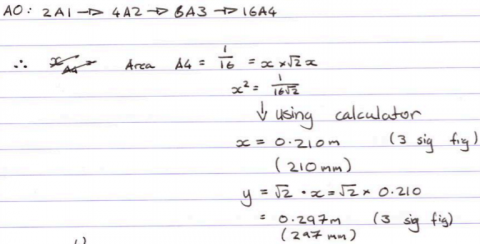 AO: 2A1 → 4A2 → 8A3 → 16A4
∴ Area A4 = 1/16 = x × √2 x
x² = 1/(16√2)
↓ using calculator
x = 0.210m (3 sig fig)
(210 mm)
y = √2 · x = √2 × 0.210
= 0.297m (3 sig fig)
(297 mm)